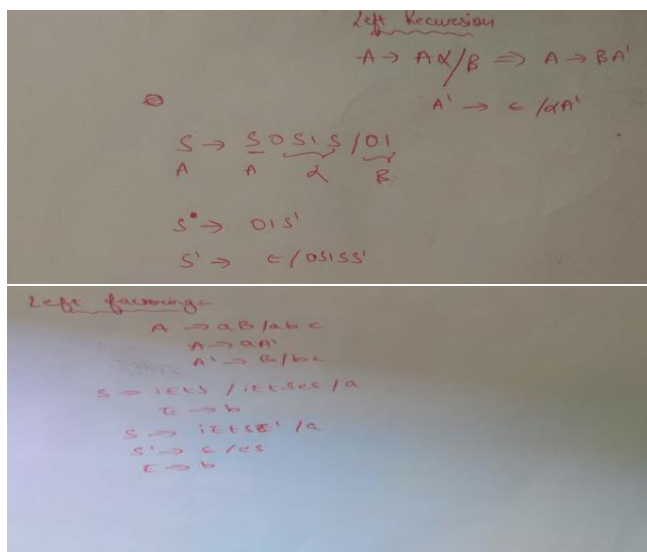 Left Recursion
A → Aα/B ⇒ A → BA'
A' → ε/αA'
S → S0S1S/01
A A α B
S → 01S'
S' → ε/0S1SS'
Left factoring-
A → aB/abc
A → aA'
A' → B/bc
S → iEtS/iEtSeS/a
E → b
S → iEtSS'/a
S' → ε/eS
E → b